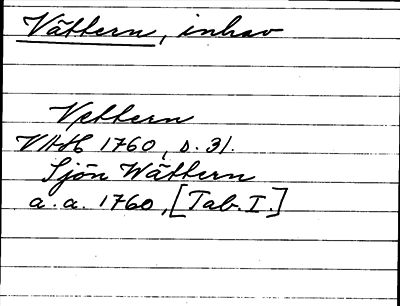 Vättern, inhav
Vettern
VAH 1760, s. 31.
Sjön Wättern
a. a. 1760, [Tab. I.]